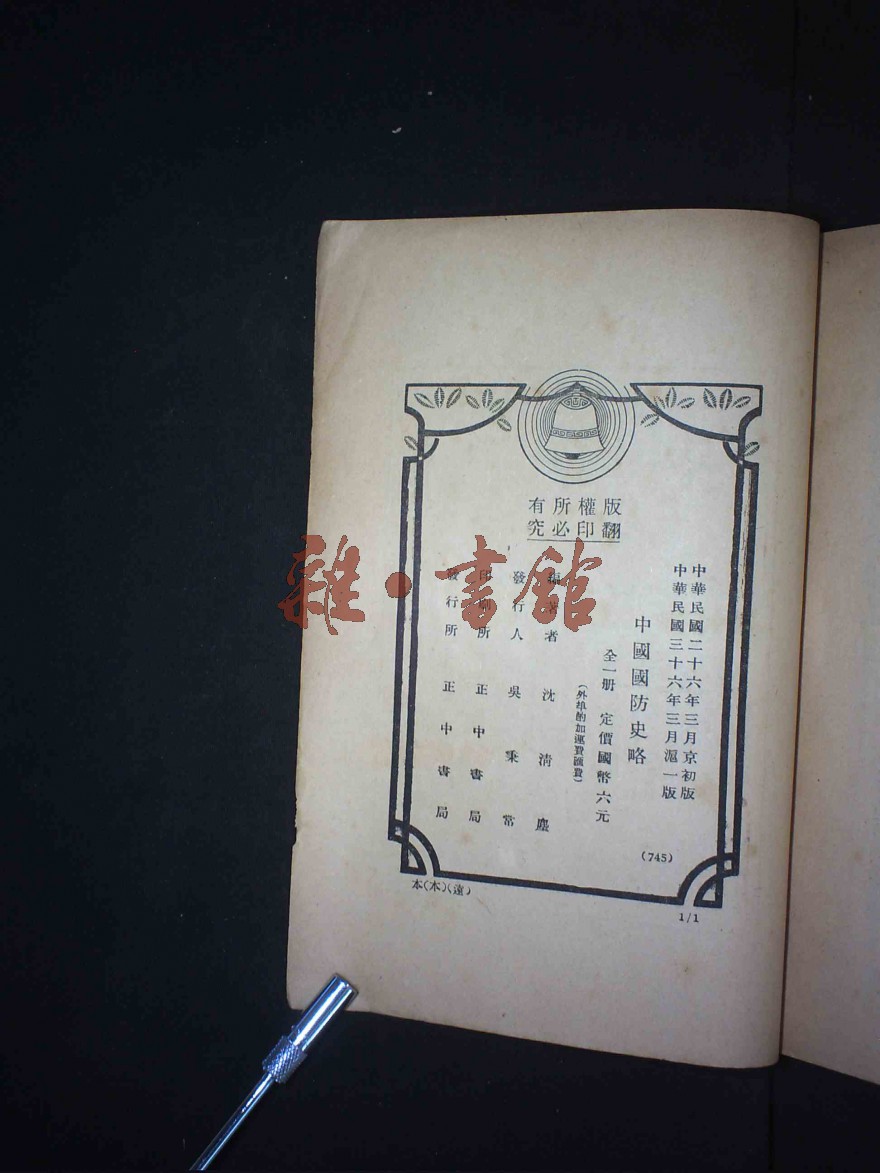 版權所有
翻印必究
中華民國二十六年三月京初版
中華民國三十六年三月滬一版
中國國防史略
全一册 定價國幣六元
(外埠酌加運費匯費)
編著者 沈清塵
發行人 吳秉常
印刷所 正中書局
發行所 正中書局
(745)
本(本)(遠)
1/1
雜·書館